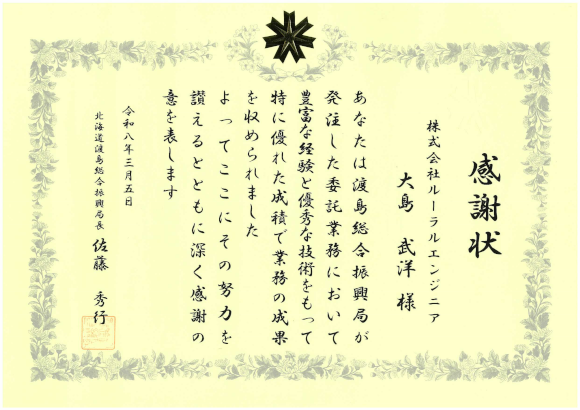 感謝状
株式会社ルーラルエンジニア
大島 武洋 様
あなたは渡島総合振興局が
発注した委託業務において
豊富な経験と優秀な技術をもって
特に優れた成績で業務の成果
を収められました
よってここにその努力を
讃えるとともに深く感謝の
意を表します
令和八年三月五日
北海道渡島総合振興局長 佐藤 秀行